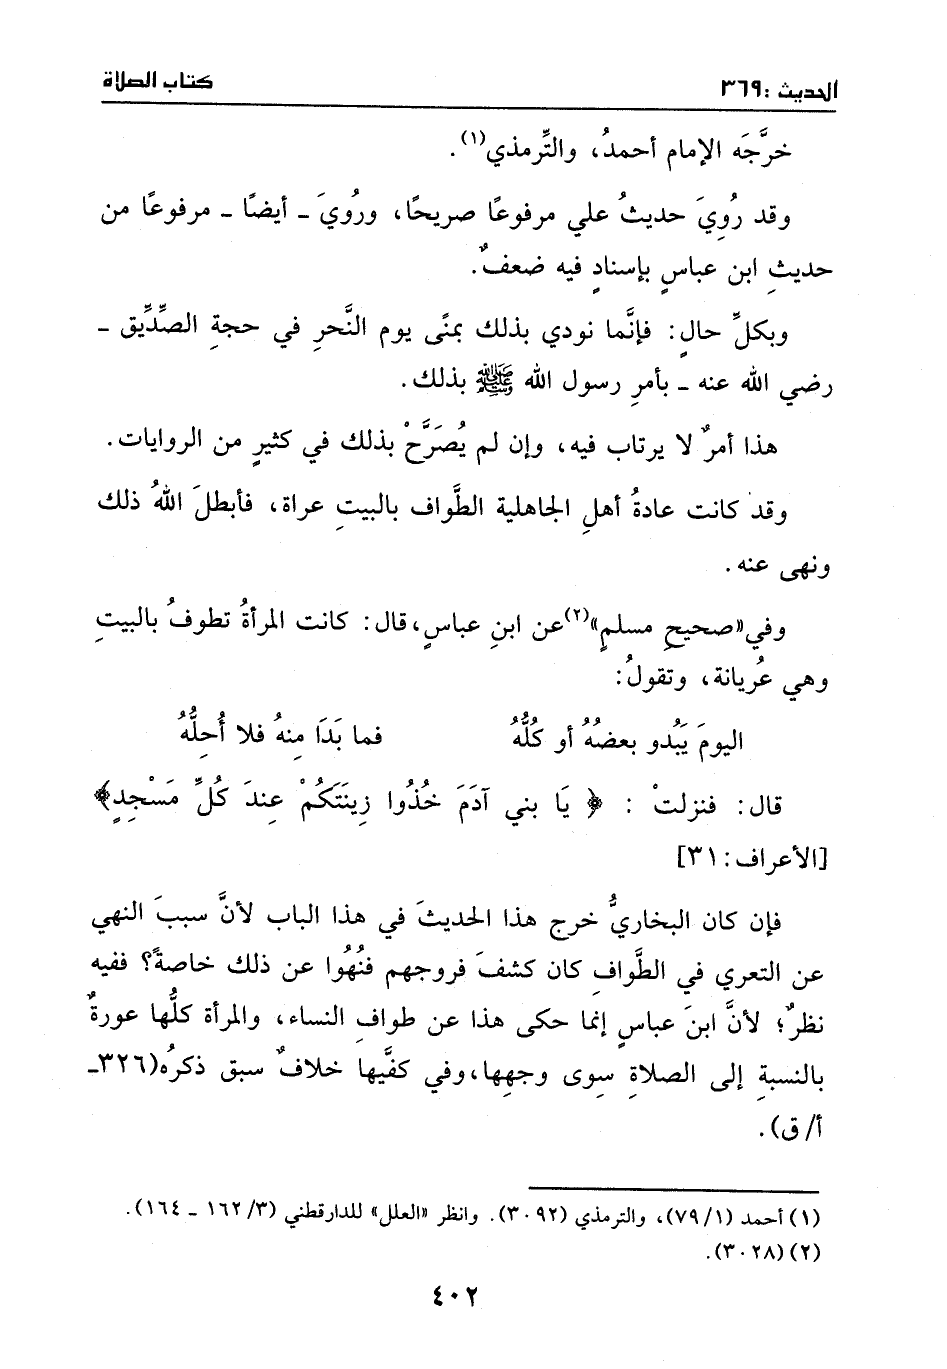 الحديث : ٣٦٩ كتاب الصلاة
خرَّجَه الإمام أحمدُ، والتِّرمذي(١).
وقد رُوِيَ حديثُ علي مرفوعًا صريحًا، ورُويَ ـ أيضًا ـ مرفوعًا من
حديثِ ابن عباسٍ بإسنادٍ فيه ضعفٌ.
وبكلِّ حالٍ: فإنَّما نودي بذلك بمنًى يوم النَّحرِ في حجةِ الصِّدِّيق ـ
رضي الله عنه ـ بأمرِ رسول الله ﷺ بذلك.
هذا أمرٌ لا يرتاب فيه، وإن لم يُصَرَّحْ بذلك في كثيرٍ من الروايات.
وقد كانت عادةُ أهلِ الجاهلية الطَّواف بالبيتِ عراة، فأبطلَ اللهُ ذلك
ونهى عنه.
وفي «صحيحِ مسلمٍ»(٢) عن ابنِ عباسٍ، قال: كانت المرأةُ تطوفُ بالبيتِ
وهي عُريانة، وتقولُ:
اليومَ يَبْدُو بعضُهُ أو كُلُّهُ فما بَدَا مِنهُ فلا أُحِلُّهُ
قال: فنزلتْ : ﴿ يَا بني آدَمَ خُذُوا زِينَتَكُمْ عِندَ كُلِّ مَسْجِدٍ﴾
[الأعراف: ٣١]
فإن كان البخاريُّ خرج هذا الحديثَ في هذا الباب لأنَّ سببَ النهي
عن التعري في الطَّوافِ كان كشفَ فروجهم فنُهُوا عن ذلك خاصةً؟ ففيه
نظرٌ؛ لأنَّ ابنَ عباسٍ إنما حكى هذا عن طوافِ النساء، والمرأة كلُّها عورةٌ
بالنسبةِ إلى الصلاةِ سِوى وجهِها، وفي كفَّيها خلافٌ سبق ذكرُه (٣٢٦ـ
أ/ ق).
(١) أحمد (١/ ٧٩)، والترمذي (٣٠٩٢). وانظر «العلل» للدارقطني (٣/ ١٦٢ ـ ١٦٤).
(٢) (٣٠٢٨).
٤٠٢